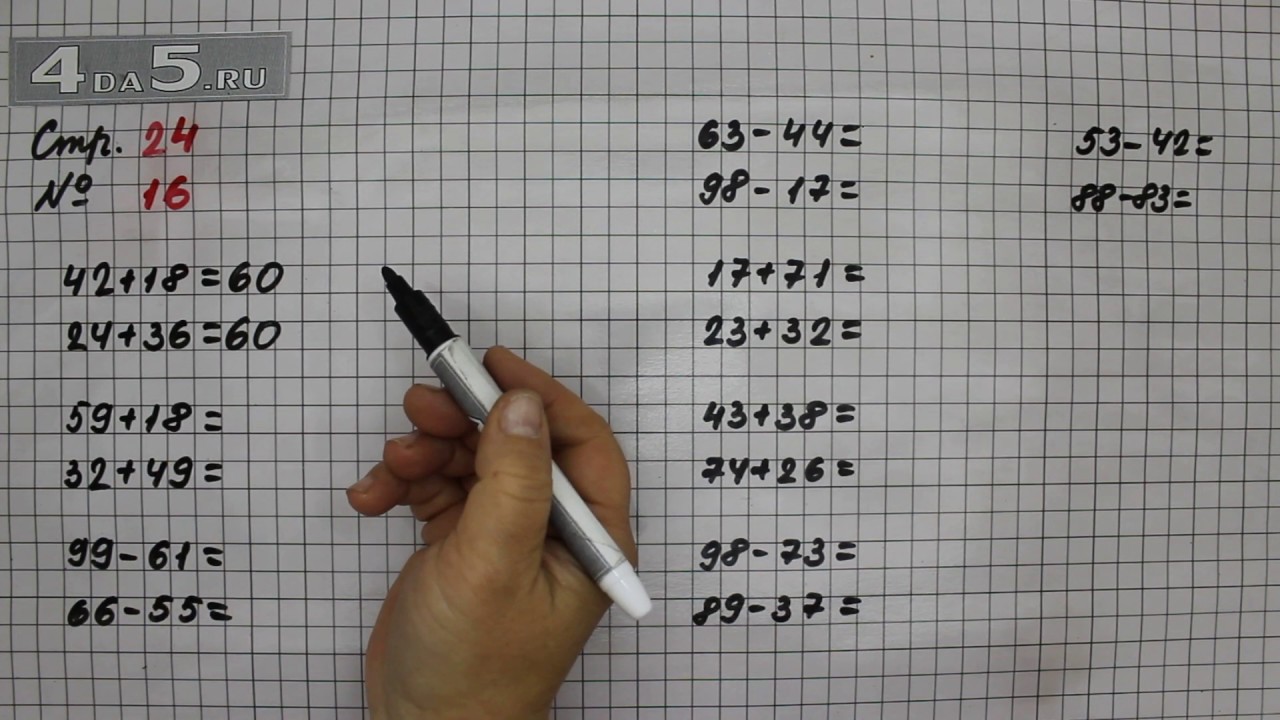 4DA5.RU
Стр. 24
№ 16
42+18=60
24+36=60
59+18=
32+49=
99-61=
66-55=
63-44=
98-17=
17+71=
23+32=
43+38=
74+26=
98-73=
89-37=
53-42=
88-83=